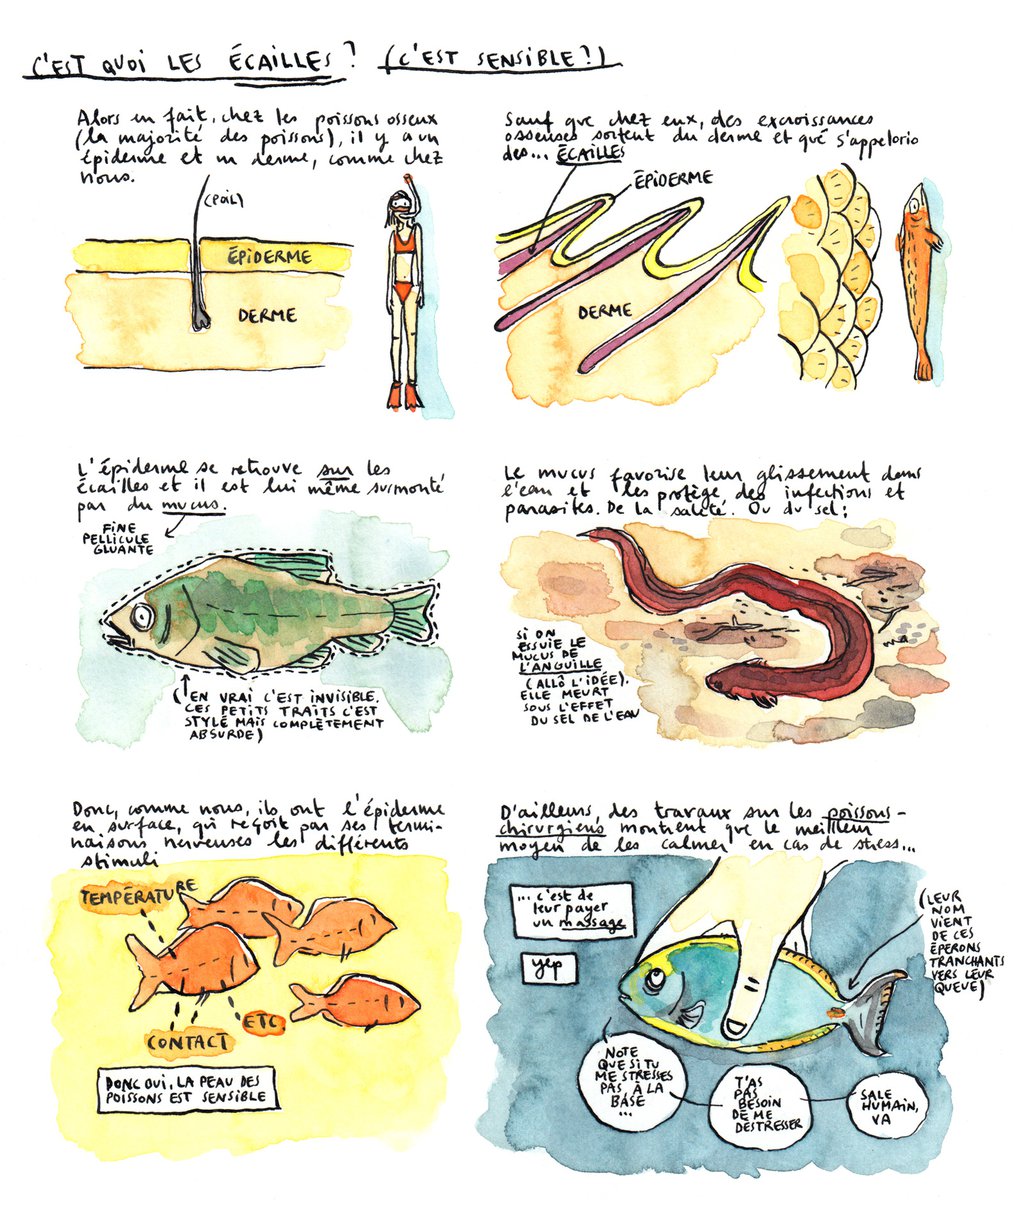 C'EST QUOI LES ÉCAILLES ? (C'EST SENSIBLE ?)
Alors en fait, chez les poissons osseux
(la majorité des poissons), il y a un
épiderme et un derme, comme chez
nous.
(POIL)
ÉPIDERME
DERME
Sauf que chez eux, des excroissances
osseuses sortent du derme et que s'appelorio
des... ÉCAILLES
ÉPIDERME
DERME
L'épiderme se retrouve sur les
écailles et il est lui même surmonté
par du mucus.
FINE
PELLICULE
GLUANTE
(EN VRAI C'EST INVISIBLE,
CES PETITS TRAITS C'EST
STYLÉ MAIS COMPLÈTEMENT
ABSURDE)
Le mucus favorise leur glissement dans
l'eau et les protège des infections et
parasites. De la saleté. Ou du sel :
SI ON
ESSUIE LE
MUCUS DE
L'ANGUILLE
(ALLÔ L'IDÉE),
ELLE MEURT
SOUS L'EFFET
DU SEL DE L'EAU
Donc, comme nous, ils ont l'épiderme
en surface, qui reçoit par ses termi-
naisons nerveuses les différents
stimuli
TEMPÉRATURE
CONTACT
ETC.
DONC OUI, LA PEAU DES
POISSONS EST SENSIBLE
D'ailleurs, des travaux sur les poissons-
chirurgiens montrent que le meilleur
moyen de les calmer en cas de stress...
... c'est de
leur payer
un massage
yep
(LEUR
NOM
VIENT
DE CES
ÉPERONS
TRANCHANTS
VERS LEUR
QUEUE)
NOTE
QUE SI TU
ME STRESSES
PAS, À LA
BASE
...
T'AS
PAS
BESOIN
DE ME
DÉSTRESSER
SALE
HUMAIN,
VA